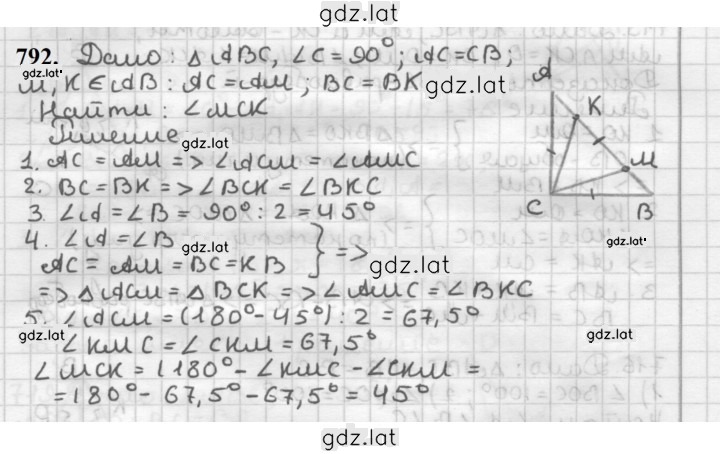 gdz.lat
792. Дано: △ABC, ∠C = 90°; AC=CB;
gdz.lat
M, K ∈ AB : AC = AM, BC = BK
gdz.lat
Найти: ∠MCK
Решение:
gdz.lat
1. AC = AM => ∠ACM = ∠AMC
2. BC = BK => ∠BCK = ∠BKC
3. ∠A = ∠B = 90° : 2 = 45°
4. ∠A = ∠B
gdz.lat
AC = AM = BC = KB } =>
gdz.lat
=> △ACM = △BCK => ∠AMC = ∠BKC
5. ∠ACM = (180° - 45°) : 2 = 67,5°
gdz.lat
∠KMC = ∠CKM = 67,5°
∠MCK = (180° - ∠KMC - ∠CKM =
= 180° - 67,5° - 67,5° = 45°
A
K
M
C
B
gdz.lat
gdz.lat
gdz.lat